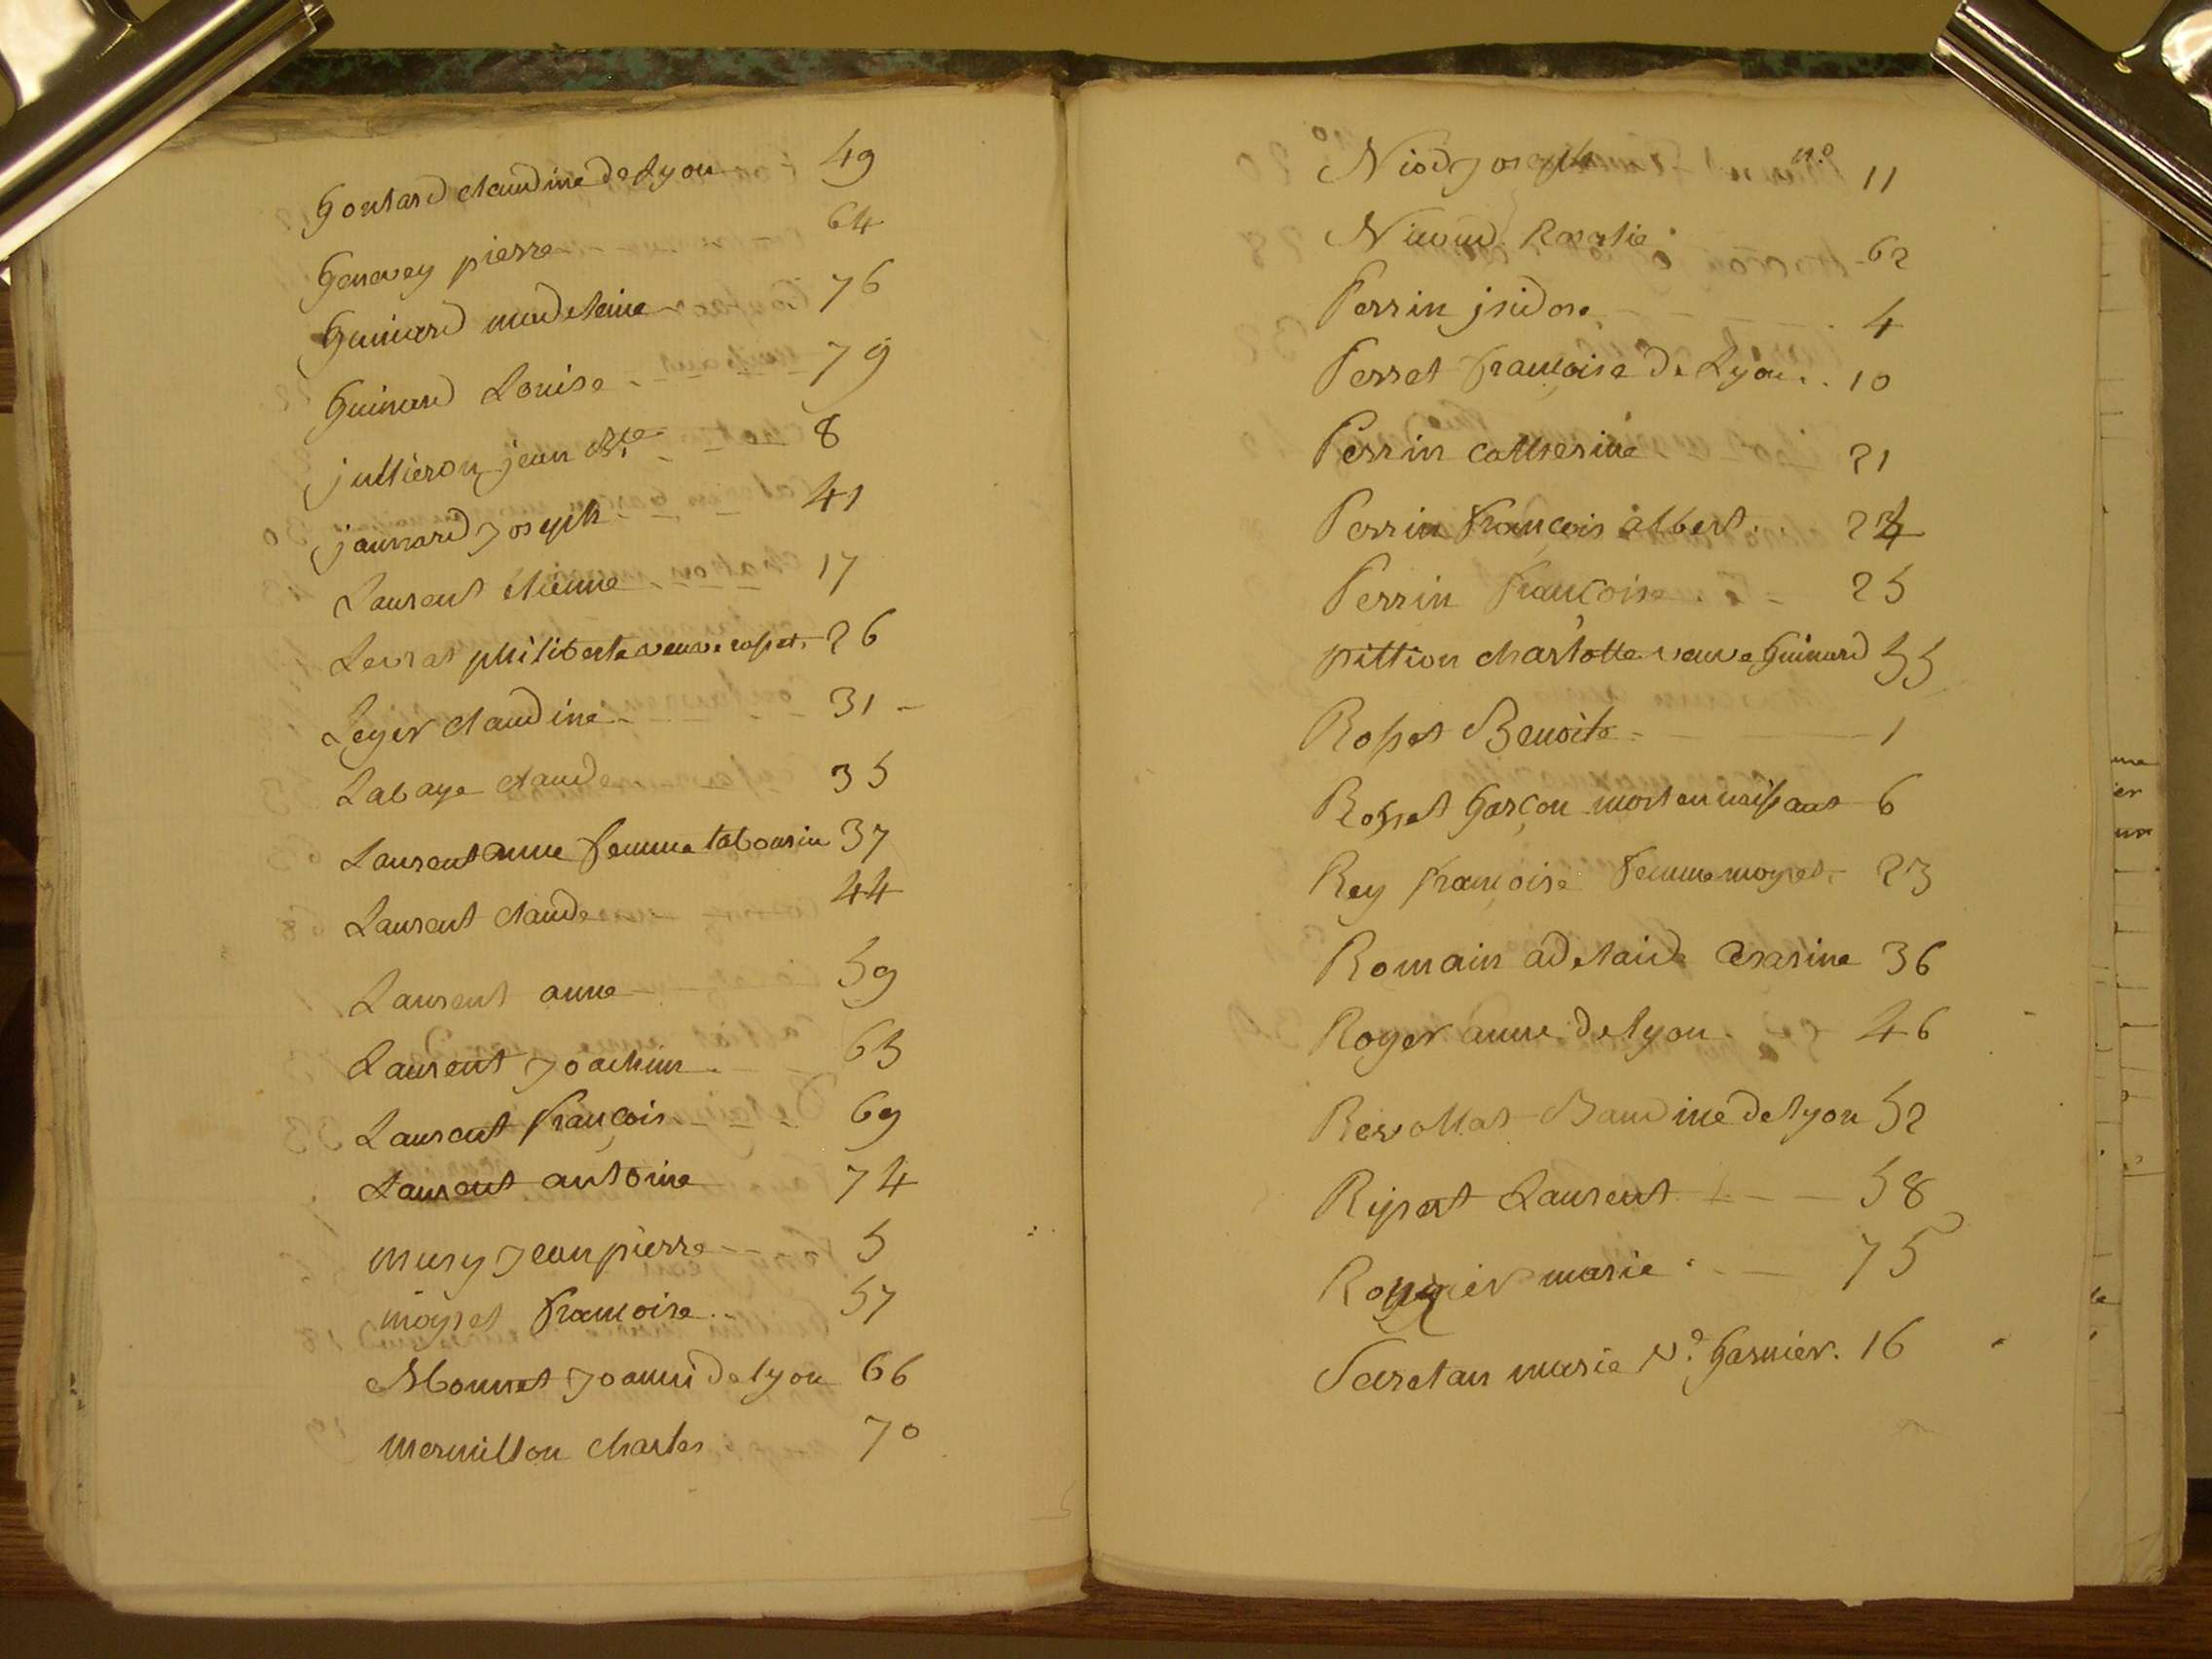 Gontard claudine de Lyon 49
Genevey pierre 64
Guinard madelaine 76
Guinard Louise 79
jullieron jean Bte 8
jannard Joseph 41
Laurent etienne 17
Levrat philiberte veuve rosset 26
Leger claudine 31
Labaye claude 35
Laurent anne femme tabourin 37
Laurent claude 44
Laurent anne 59
Laurent Joachim 65
Laurent françois 69
Laurent antoine 74
Mury Jean pierre 5
moyret francoise 57
Monnet Joanni de lyon 66
Mermillon charles 70
Niod Joseph n.o 11
Nicoud Rosalie 62
Perrin jsidore 4
Perret francoise De Lyon 10
Perrin catherine 21
Perrin françois albert 24
Perrin françoise 25
pittion charlotte veuve Guinard 55
Rosset Benoite 1
Rosset Garçon mort en naissant 6
Rey francoise femme moyret 23
Romain adelaide Cesarine 36
Roger anne de lyon 46
Revollat Baudine de lyon 52
Ripert Laurent 58
marie 75
Secretan marie Ve Garnier 16